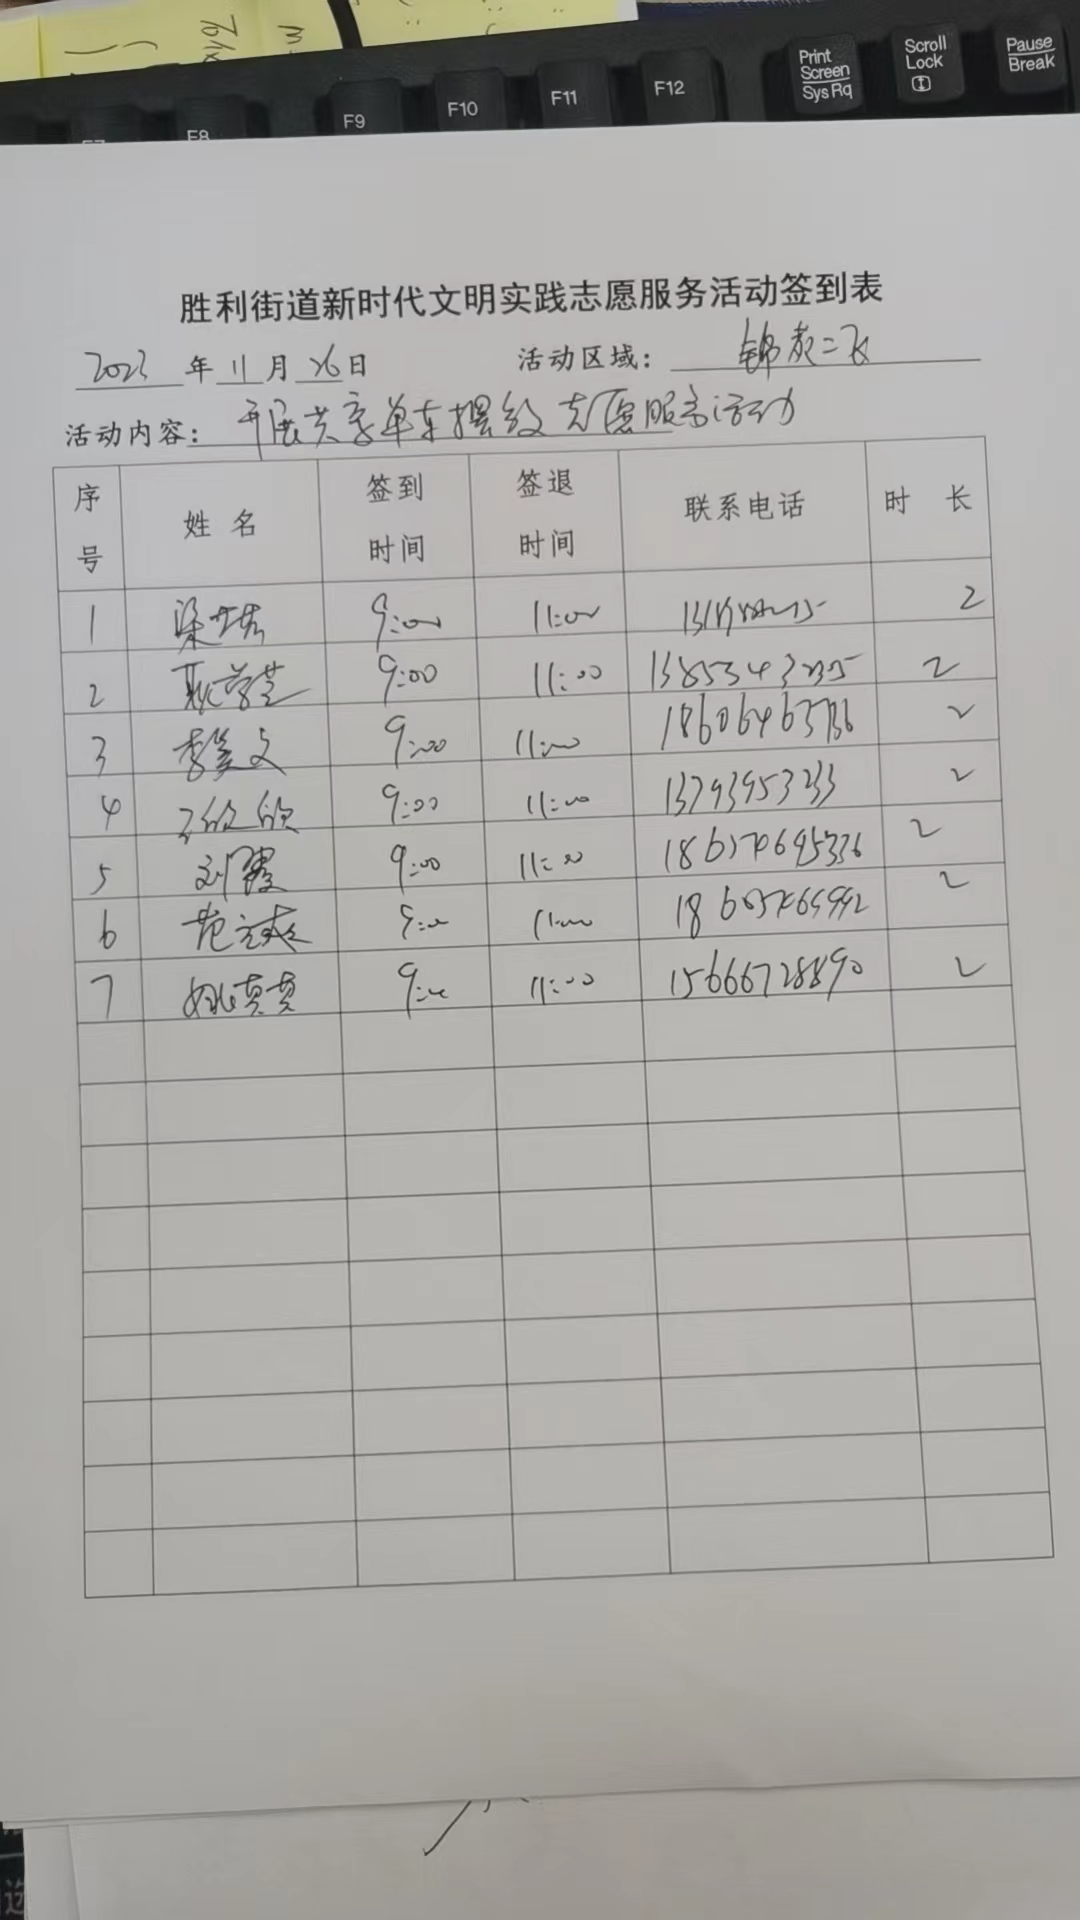 Print
Screen
SysRq
Scroll
Lock
Pause
Break
F7 F8 F9 F10 F11 F12
胜利街道新时代文明实践志愿服务活动签到表
2023年11月26日 活动区域：锦苑二
活动内容：开展共享单车摆放志愿服务活动
序号 姓名 签到时间 签退时间 联系电话 时长
1 9:00 11:00 2
2 9:00 11:00 2
3 李美文 9:00 11:00 2
4 9:00 11:00 13793953233 2
5 刘霞 9:00 11:00 2
6 范立爽 9:00 11:00 2
7 姚真真 9:00 11:00 15666728890 2